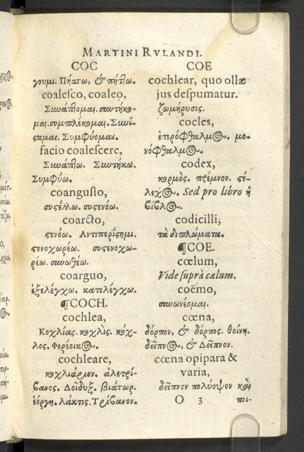 MARTINI RVLANDI.
COC
γνυμι. Πήσσω, & πήττω.
coalesco, coaleo,
Συνάπτομαι. συντήκομαι. συμπλέκομαι. Συνίσταμαι. Συμφύομαι.
facio coalescere,
Συνάπτω. Συντήκω.
Συμφύω.
coangusto,
συστέλλω. συστενόω.
coarcto,
στενόω.
στενοχωρέω. συστενοχωρέω. συνωθέω.
coarguo,
ἐξελέγχω. κατελέγχω.
¶COCH.
cochlea,
Κοχλίας. κοχλὶς. κόχλος. Φερέοικος.
cochleare,
κοχλιάριον.
Δοίδυξ.
λάκτις. Τρίβανον.
COE
cochlear, quo ollæ
ius despumatur.
ζωμήρυσις.
cocles,
ἑτερόφθαλμος. μονόφθαλμος.
codex,
κορμὸς. στέλεχος. Sed pro libro ἡ
βίβλος.
codicilli,
τὰ διπλώματα.
¶COE.
cœlum,
Vide suprà cælum.
coëmo,
συνωνέομαι.
cœna,
δόρπον, & δόρπος. θοίνη.
δεῖπνος, & Δεῖπνον.
cœna opipara &
varia,
δεῖπνον πολύοψον καὶ
O 3
ποι-